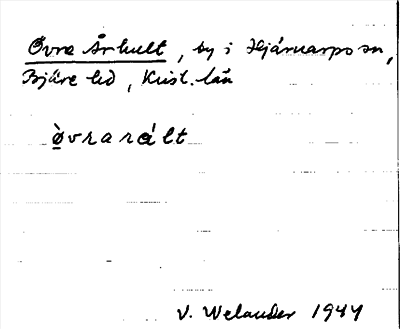 Övre Århult, by i Hjärnarps sn,
Bjäre hd, Krist. län
ø̀vrarált
V. Welander 1944